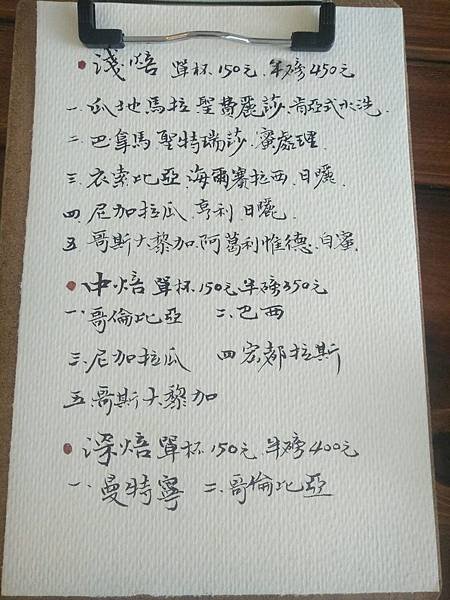 • 淺焙 單杯 150元.半磅450元
一.瓜地馬拉聖費麗莎.肯亞式水洗.
二.巴拿馬聖特瑞莎.蜜處理.
三.衣索比亞.海爾賽拉西.日曬.
四.尼加拉瓜.亨利.日曬.
五.哥斯大黎加.阿葛利惟德.白蜜.
• 中焙 單杯.150元.半磅350元
一.哥倫比亞 二.巴西
三.尼加拉瓜 四宏都拉斯
五.哥斯大黎加
• 深焙 單杯.150元.半磅400元
一.曼特寧 二.哥倫比亞